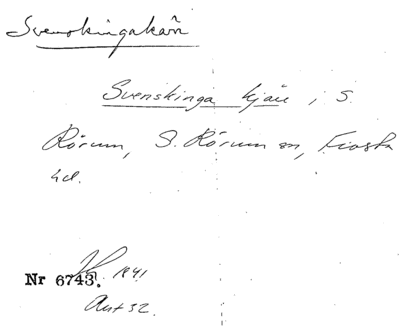 Svenskingakärr
Svenskinga kjär, i S.
Rörum, S. Rörum sn, Frosta
hd.
Nr 6743. 1841
Avt 52.